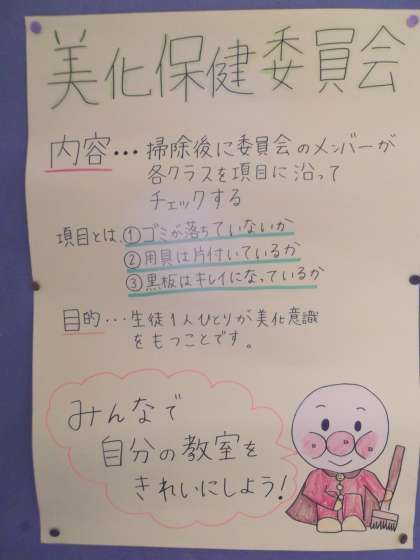 美化保健委員会
内容… 掃除後に委員会のメンバーが
各クラスを項目に沿って
チェックする
項目とは、①ゴミが落ちていないか
②用具は片付いているか
③黒板はキレイになっているか
目的… 生徒1人ひとりが美化意識
をもつことです。
みんなで
自分の教室を
きれいにしよう!